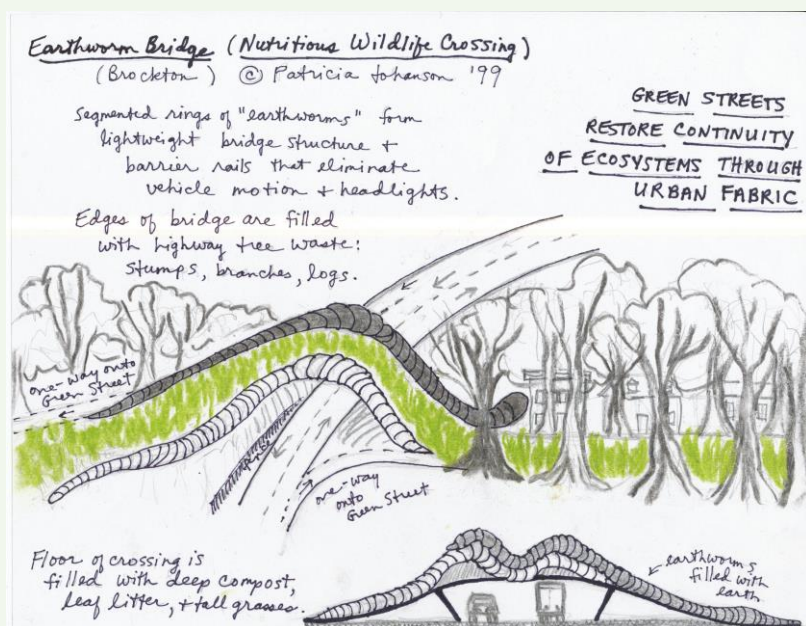 Earthworm Bridge (Nutritious Wildlife Crossing)
(Brockton) © Patricia Johanson '99
Segmented rings of "earthworms" form
lightweight bridge structure +
barrier rails that eliminate
vehicle motion + headlights.
Edges of bridge are filled
with highway tree waste:
stumps, branches, logs.
GREEN STREETS
RESTORE CONTINUITY
OF ECOSYSTEMS THROUGH
URBAN FABRIC
one-way onto
Green Street
one-way
onto
Green Street
Floor of crossing is
filled with deep compost,
leaf litter, + tall grasses.
earthworms
filled with
earth